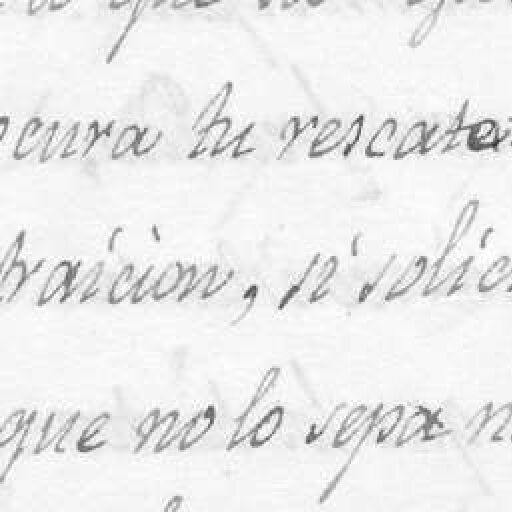 que
cura tu rescate
traicion, si solic
que no lo sepa n